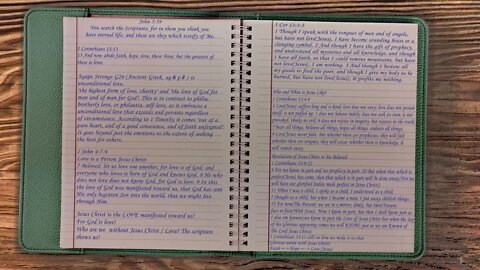 John 5:39
You search the Scriptures, for in them you think you
have eternal life; and these are they which testify of Me.
1 Corinthians 13:13
13 And now abide faith, hope, love, these three; but the greatest of
these is love.
Agape Strongs G26 (Ancient Greek, is
unconditional love,
"the highest form of love, charity" and "the love of God for
man and of man for God". This is in contrast to philia,
brotherly love, or philautia, self-love, as it embraces a
unconditional love that extends and persists regardless
of circumstance. According to 1 Timothy it comes "out of a
pure heart, and of a good conscience, and of faith unfeigned".
It goes beyond just the emotions to the extent of seeking
the best for others.
1 John 4:7-9
Love is a Person Jesus Christ
7 Beloved, let us love one another, for love is of God; and
everyone who loves is born of God and knows God. 8 He who
does not love does not know God, for God is love. 9 In this
the love of God was manifested toward us, that God has sent
His only begotten Son into the world, that we might live
through Him.
Jesus Christ is the LOVE manifested toward us!
For God is love!
Who are we without Jesus Christ / Love! The scripture
shows us!
1 Cor 13:1-3
1 Though I speak with the tongues of men and of angels,
but have not love(Jesus), I have become sounding brass or a
clanging cymbal. 2 And though I have the gift of prophecy,
and understand all mysteries and all knowledge, and though
I have all faith, so that I could remove mountains, but have
not love(Jesus), I am nothing. 3 And though I bestow all
my goods to feed the poor, and though I give my body to be
burned, but have not love(Jesus), it profits me nothing.
Who and What is Jesus Like?
1 Corinthians 13:4-8
4 Love(Jesus) suffers long and is kind; love does not envy; love does not parade
itself, is not puffed up; 5 does not behave rudely, does not seek its own, is not
provoked, thinks no evil; 6 does not rejoice in iniquity, but rejoices in the truth;
7 bears all things, believes all things, hopes all things, endures all things.
8 Love(Jesus) never fails. But whether there are prophecies, they will fail;
whether there are tongues, they will cease; whether there is knowledge, it
will vanish away.
Revelation of Jesus Christ to his Beloved
1 Corinthians 13:9-12
9 For we know in part and we prophesy in part. 10 But when that which is
perfect(Jesus) has come, then that which is in part will be done away.(For we
will have our glorified bodies made perfect in Jesus Christ)
11 When I was a child, I spoke as a child, I understood as a child,
I thought as a child; but when I became a man, I put away childish things.
12 For now(The Present) we see in a mirror, dimly, but then(Future)
face to face(With Jesus). Now I know in part, but then I shall know just as
I also am known.
The Lord Jesus Christ)
1 Corinthians 13:13 tells us how we make it to that
Glorious union with Jesus Christ!